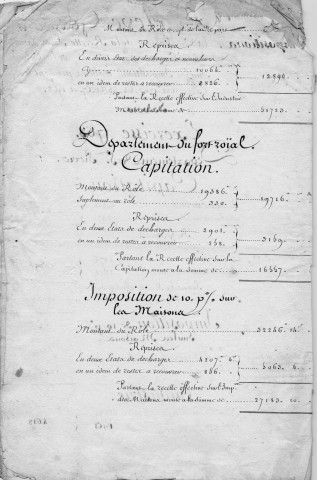 Montant du Rôle
Reprises
En divers états de décharges et
10064
en un idem de restes a recouvrer 2826
12890
Partant la Recette effective sur l'industrie
Departement du fort roïal.
Capitation.
Montant du Rôle 19386
Suplement au rôle 330
19716
Reprises
En deux Etats de decharges 2901
en un idem de restes a recouvrer 258
3159
Partant la Recette effective sur la
Capitation, monte a la somme de 16557
Imposition de 10. p% sur
les Maisons
Montant du Rôle 32246
Reprises
En deux Etats de decharges 4207
en un idem de restes a recouvrer 856
5063
Partant la recette effective sur l'Imp.
des Maisons monte a la somme de 27183